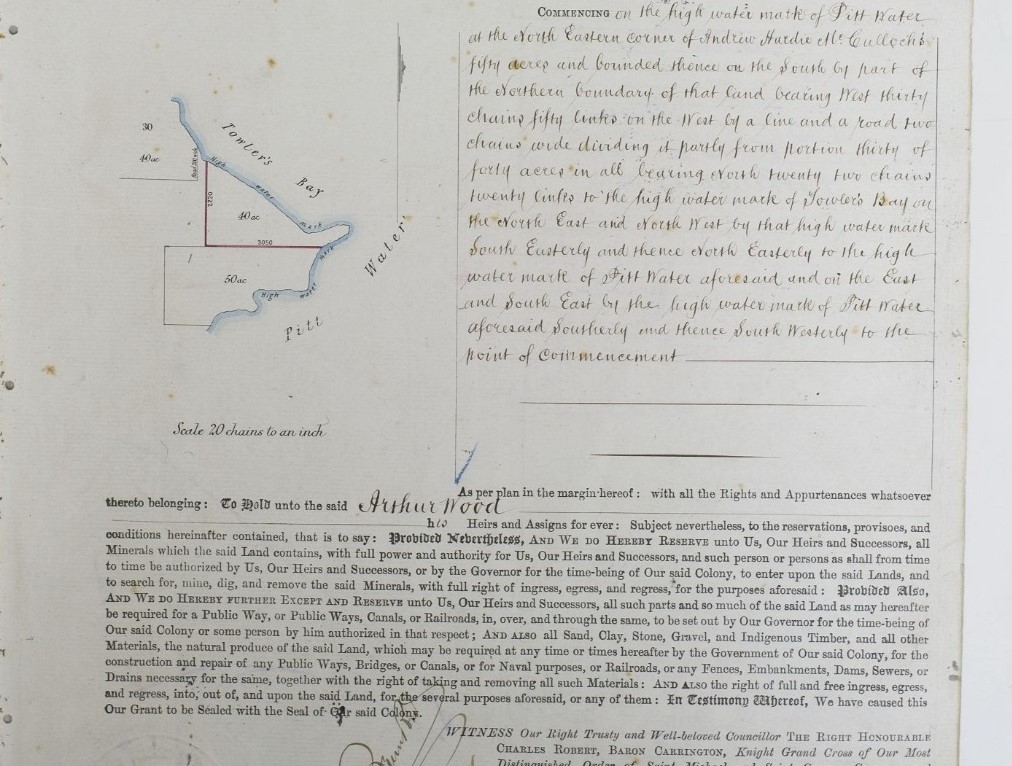 COMMENCING on the high water mark of Pitt Water
at the North Eastern corner of Andrew Hardie Mc Culloch's
fifty acres and bounded thence on the South by part of
the Northern boundary of that land bearing West thirty
chains fifty links on the West by a line and a road two
chains wide dividing it partly from portion thirty of
forty acres in all bearing North twenty two chains
twenty links to the high water mark of Towler's Bay on
the North East and North West by that high water mark
South Easterly and thence North Easterly to the high
water mark of Pitt Water aforesaid and on the East
and South East by the high water mark of Pitt Water
aforesaid Southerly and thence South Westerly to the
point of Commencement
30
40ac
Towler's Bay
High water mark
2220
40ac
3050
50ac
High water mark
Pitt Water
Scale 20 chains to an inch
As per plan in the margin hereof: with all the Rights and Appurtenances whatsoever
thereto belonging: To Hold unto the said Arthur Wood
his Heirs and Assigns for ever: Subject nevertheless, to the reservations, provisoes, and
conditions hereinafter contained, that is to say: Provided Nevertheless, AND WE DO HEREBY RESERVE unto Us, Our Heirs and Successors, all
Minerals which the said Land contains, with full power and authority for Us, Our Heirs and Successors, and such person or persons as shall from time
to time be authorized by Us, Our Heirs and Successors, or by the Governor for the time-being of Our said Colony, to enter upon the said Lands, and
to search for, mine, dig, and remove the said Minerals, with full right of ingress, egress, and regress, for the purposes aforesaid: Provided Also,
AND WE DO HEREBY FURTHER EXCEPT AND RESERVE unto Us, Our Heirs and Successors, all such parts and so much of the said Land as may hereafter
be required for a Public Way, or Public Ways, Canals, or Railroads, in, over, and through the same, to be set out by Our Governor for the time-being of
Our said Colony or some person by him authorized in that respect; AND ALSO all Sand, Clay, Stone, Gravel, and Indigenous Timber, and all other
Materials, the natural produce of the said Land, which may be required at any time or times hereafter by the Government of Our said Colony, for the
construction and repair of any Public Ways, Bridges, or Canals, or for Naval purposes, or Railroads, or any Fences, Embankments, Dams, Sewers, or
Drains necessary for the same, together with the right of taking and removing all such Materials: AND ALSO the right of full and free ingress, egress,
and regress, into, out of, and upon the said Land, for the several purposes aforesaid, or any of them: In Testimony Whereof, We have caused this
Our Grant to be Sealed with the Seal of Our said Colony.
WITNESS Our Right Trusty and Well-beloved Councillor THE RIGHT HONOURABLE
CHARLES ROBERT, BARON CARRINGTON, Knight Grand Cross of Our Most